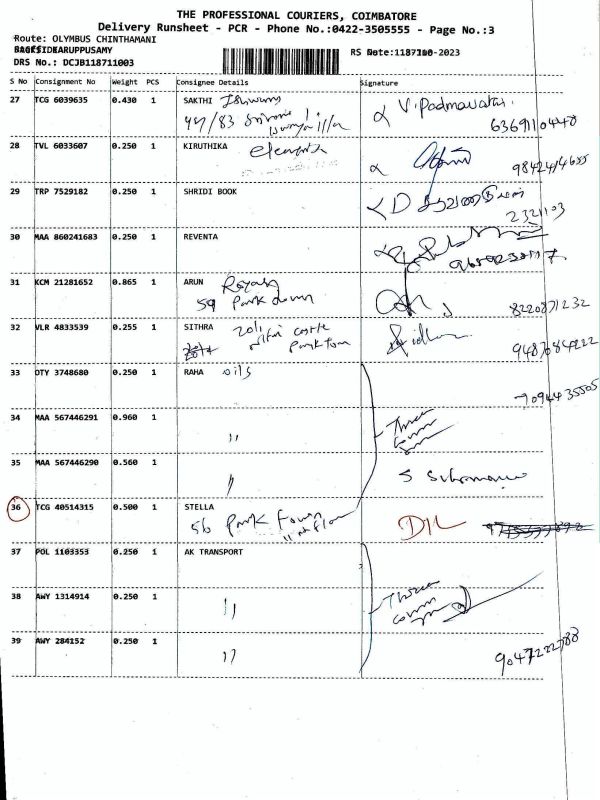 THE PROFESSIONAL COURIERS, COIMBATORE
Delivery Runsheet - PCR - Phone No.:0422-3505555 - Page No.:3
Route: OLYMBUS CHINTHAMANI
DRS No.: DCJB118711003
RS Date:
S No Consignment No Weight PCS Consignee Details Signature
27 TCG 6039635 0.430 1 SAKTHI V. Padmavathi
44/83
6369110448
28 TVL 6033607 0.250 1 KIRUTHIKA
9842414655
29 TRP 7529182 0.250 1 SHRIDI BOOK
2321103
30 MAA 860241683 0.250 1 REVENTA
31 KCM 21281652 0.865 1 ARUN Royals
59 Park town
8220871232
32 VLR 4833539 0.255 1 SITHRA 201, castle
Park town
9487684222
33 OTY 3748680 0.250 1 RAHA oils
7094435505
34 MAA 567446291 0.960 1 "
Three
35 MAA 567446290 0.560 1 "
36 TCG 40514315 0.500 1 STELLA
56 Park Town
D/L
37 POL 1103353 0.250 1 AK TRANSPORT
38 AWY 1314914 0.250 1 "
Three
39 AWY 284152 0.250 1 "
9047222788